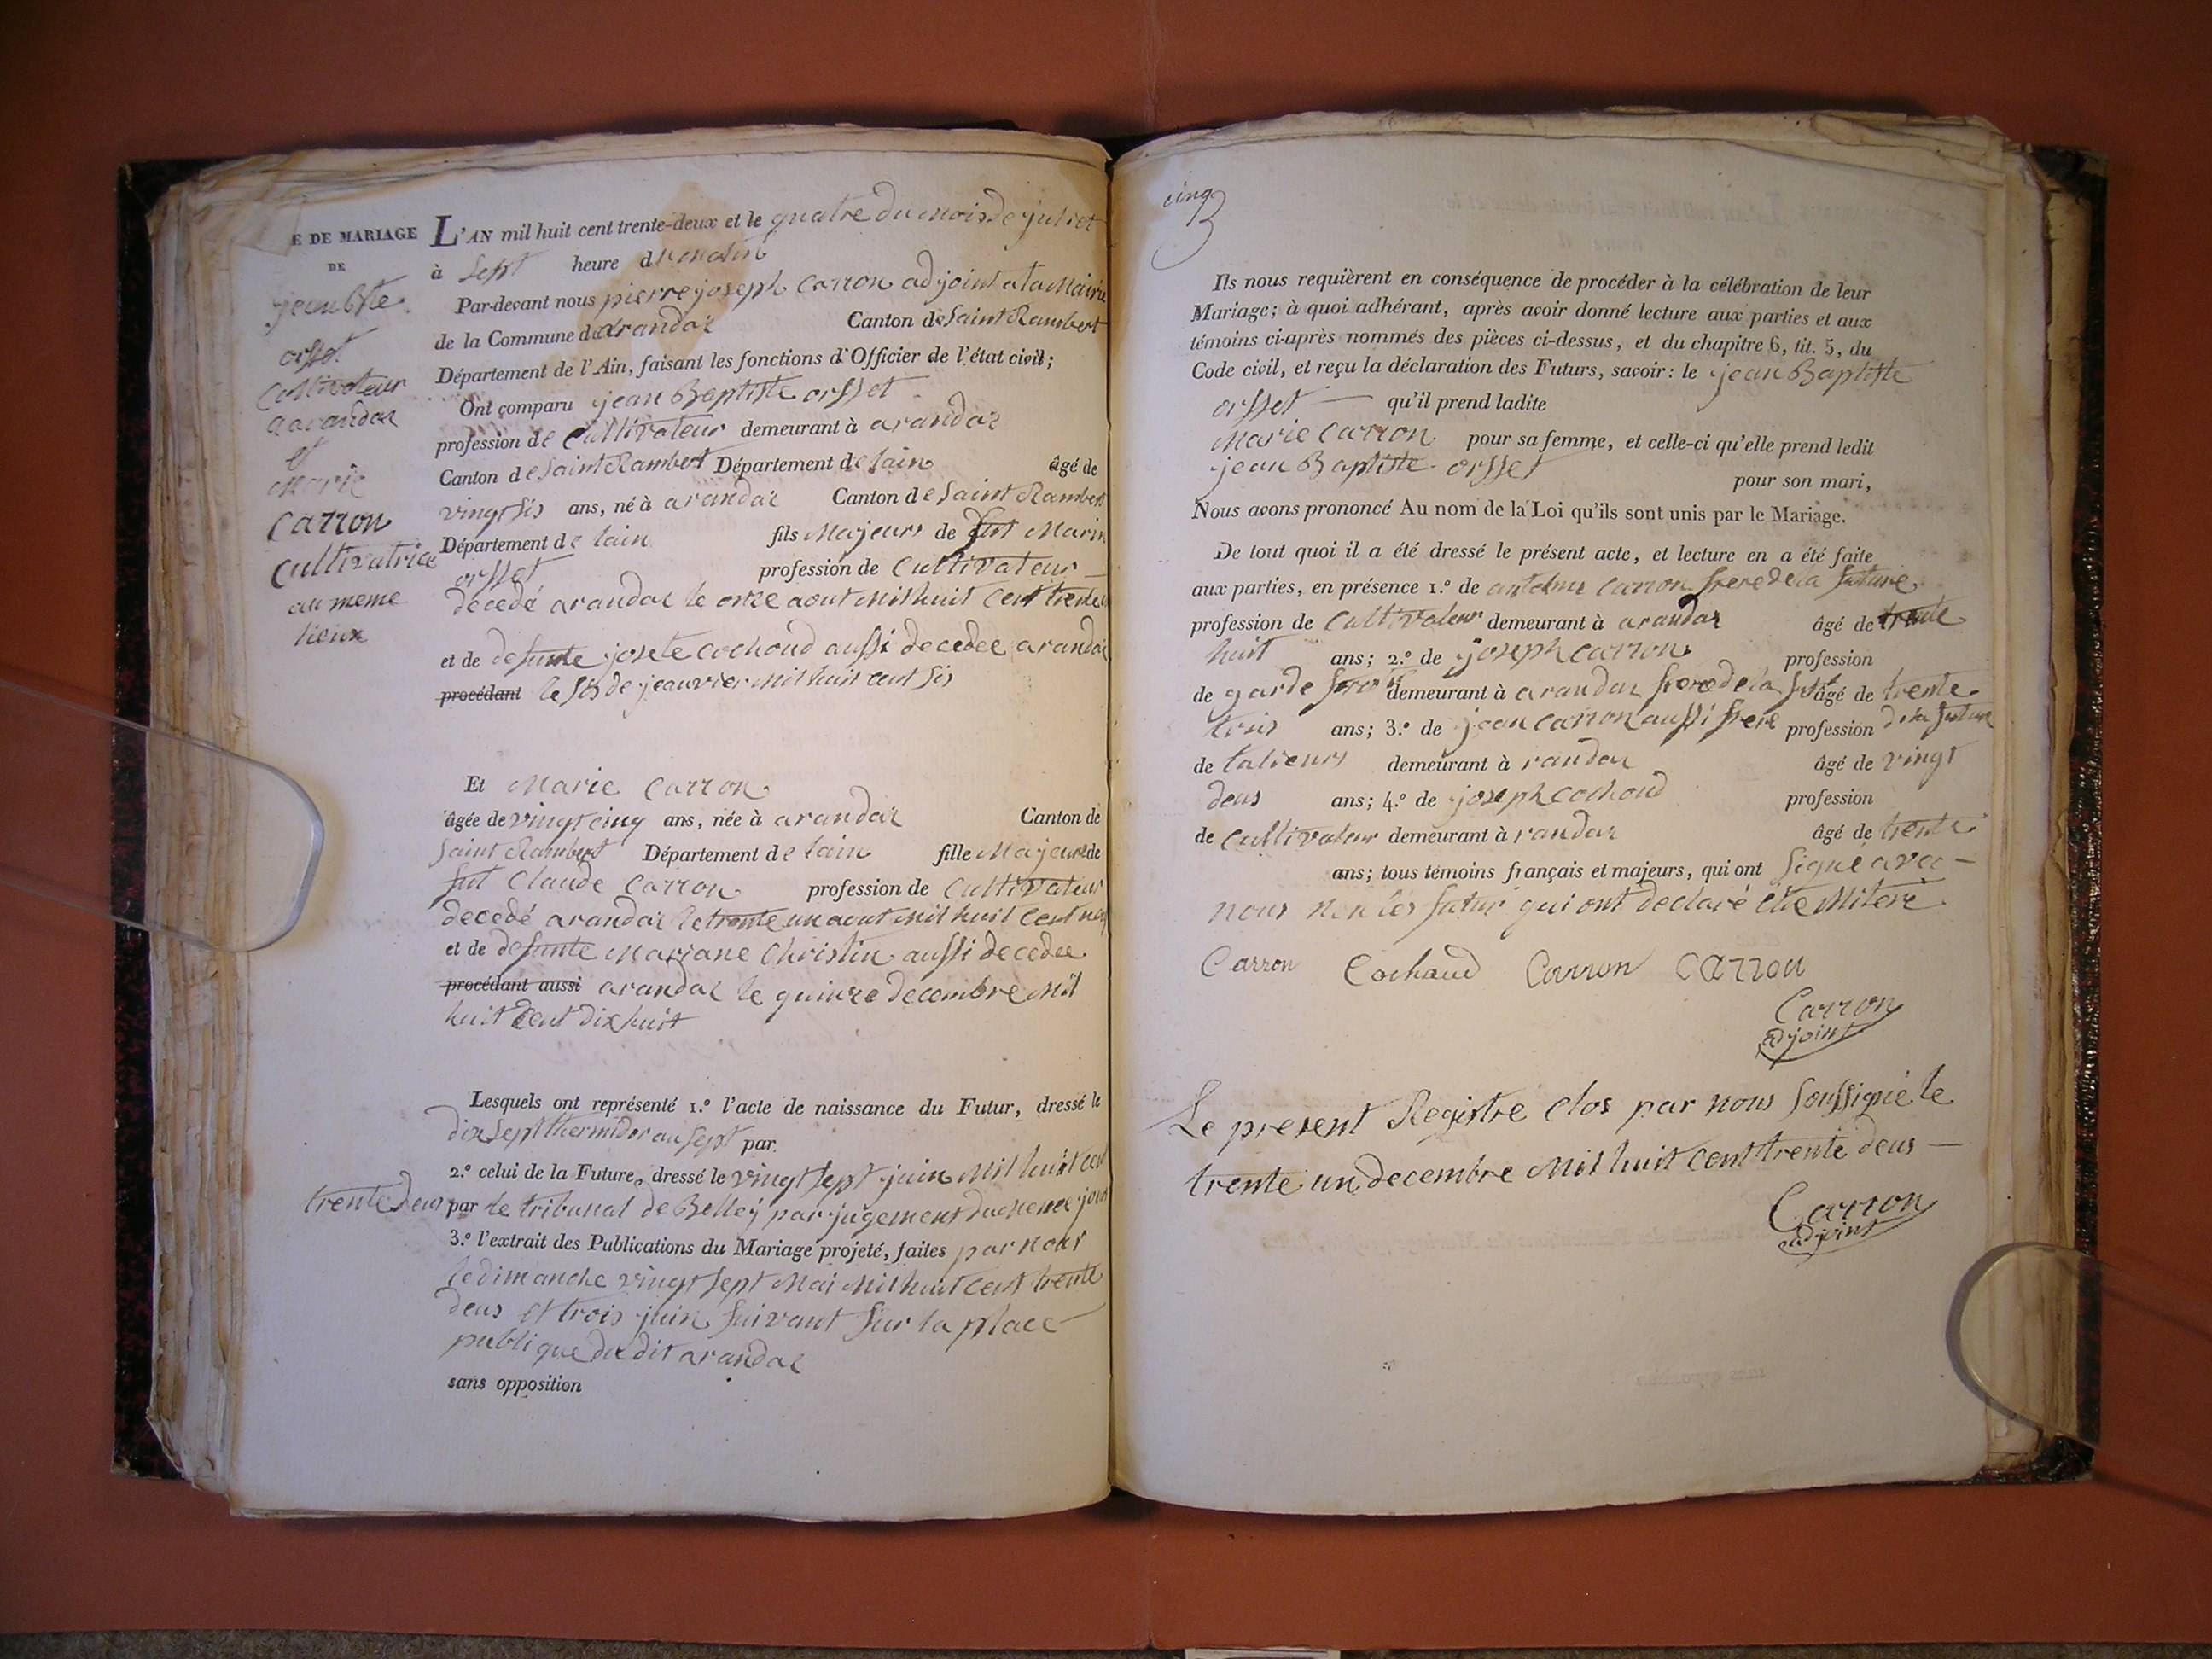 E DE MARIAGE
DE
jean bte
orset
Cultivateur
a arandaz
et
Marie
Carron
Cultivatrice
au meme
lieux
L'AN mil huit cent trente-deux et le quatre du mois de juliet
à sept heure du matin
Par-devant nous pierre joseph Carron adjoint a la Mairie
de la Commune de arandaz Canton de Saint Rambert
Département de l'Ain, faisant les fonctions d'Officier de l'état civil;
Ont comparu jean Baptiste orsset
profession de Cultivateur demeurant à arandaz
Canton de Saint Rambert Département de lain âgé de
vingt sis ans, né à arandaz Canton de Saint Rambert
Département de lain fils Majeurs de fut Marin
orsset profession de Cultivateur
décedé arandaz le onze aout Mil huit Cent trente
et de defunte josete Cochoud aussi decedee arandaz
procédant le sis de jeanvier Mil huit cent sis
Et Marie Carron
âgée de vingt cinq ans, née à arandaz Canton de
Saint Rambert Département de lain fille Majeure de
fut Claude Carron profession de Cultivateur
decedé arandaz le trente un aout Mil huit Cent neuf
et de defunte Mariane Christin aussi decedee
procédant aussi arandaz le quinze decembre Mil
huit Cent dix huit
Lesquels ont représenté 1.º l'acte de naissance du Futur, dressé le
dix sept thermidor an sept par
2.º celui de la Future, dressé le vingt sept juin Mil huit cent
trente deus par le tribunal de Belley par jugement du meme jour
3.º l'extrait des Publications du Mariage projeté, faites par nous
le dimanche vingt sept Mai Mil huit Cent trente
deus et trois juin suivant sur la place
publique dudit arandaz
sans opposition
cinq
Ils nous requièrent en conséquence de procéder à la célébration de leur
Mariage; à quoi adhérant, après avoir donné lecture aux parties et aux
témoins ci-après nommés des pièces ci-dessus, et du chapitre 6, tit. 5, du
Code civil, et reçu la déclaration des Futurs, savoir: le jean Baptiste
orsset qu'il prend ladite
Marie Carron pour sa femme, et celle-ci qu'elle prend ledit
jean Baptiste orsset pour son mari,
Nous avons prononcé Au nom de la Loi qu'ils sont unis par le Mariage.
De tout quoi il a été dressé le présent acte, et lecture en a été faite
aux parties, en présence 1.º de antelme Carron frere de la future
profession de Cultivateur demeurant à arandaz âgé de trente
huit ans; 2.º de joseph Carron profession
de garde demeurant à arandaz frere de la âgé de trente
trois ans; 3.º de jean Carron aussi frere profession de la future
de talieurs demeurant à randaz âgé de vingt
deus ans; 4.º de joseph Cochoud profession
de Cultivateur demeurant à randaz âgé de trente
ans; tous témoins français et majeurs, qui ont Signé avec
nous non les futur qui ont declaré être
Carron Cochaud Carron Carron
Carron
adjoint
Le present Registre Clos par nous Soussigné le
trente un decembre Mil huit Cent trente deus
Carron
adjoint